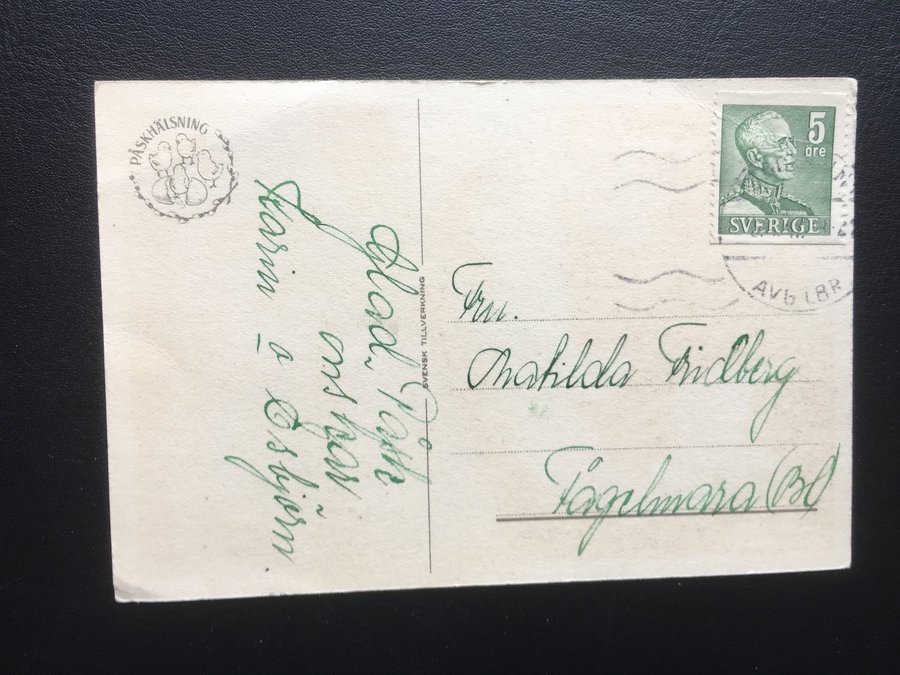 PÅSKHÄLSNING
Glad Påsk
önskar
Karin o Esbjörn
SVENSK TILLVERKNING
5
öre
SVERIGE
AVG LBR
Fru.
Matilda Fridberg
Fågelmara (Bl)